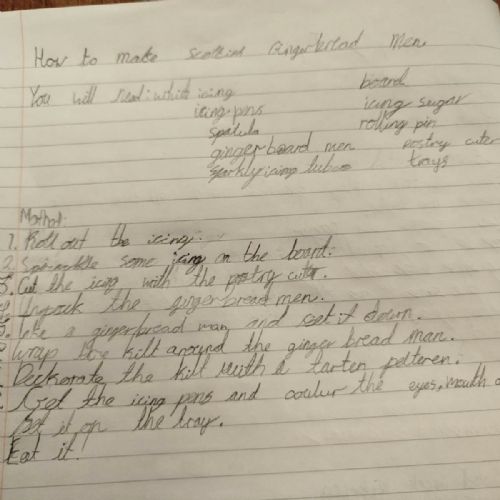 How to make scottish Gingerbread Men
You will need: white icing
icing pens
spatula
gingerboard men
sparkly icing tubes
board
icing sugar
rolling pin
pastry cuter
trays
Method:
1. Roll out the icing.
2. Sprinkle some icing on the board.
3. Cut the icing with the pastry cuter.
Unpack the gingerbread men.
Take a gingerbread man and set it down.
Wrap the kilt around the ginger bread man.
Deckorate the kilt with a tarten patteren.
Get the icing pens and coulur the eyes, mouth
Put it on the tray.
Eat it!